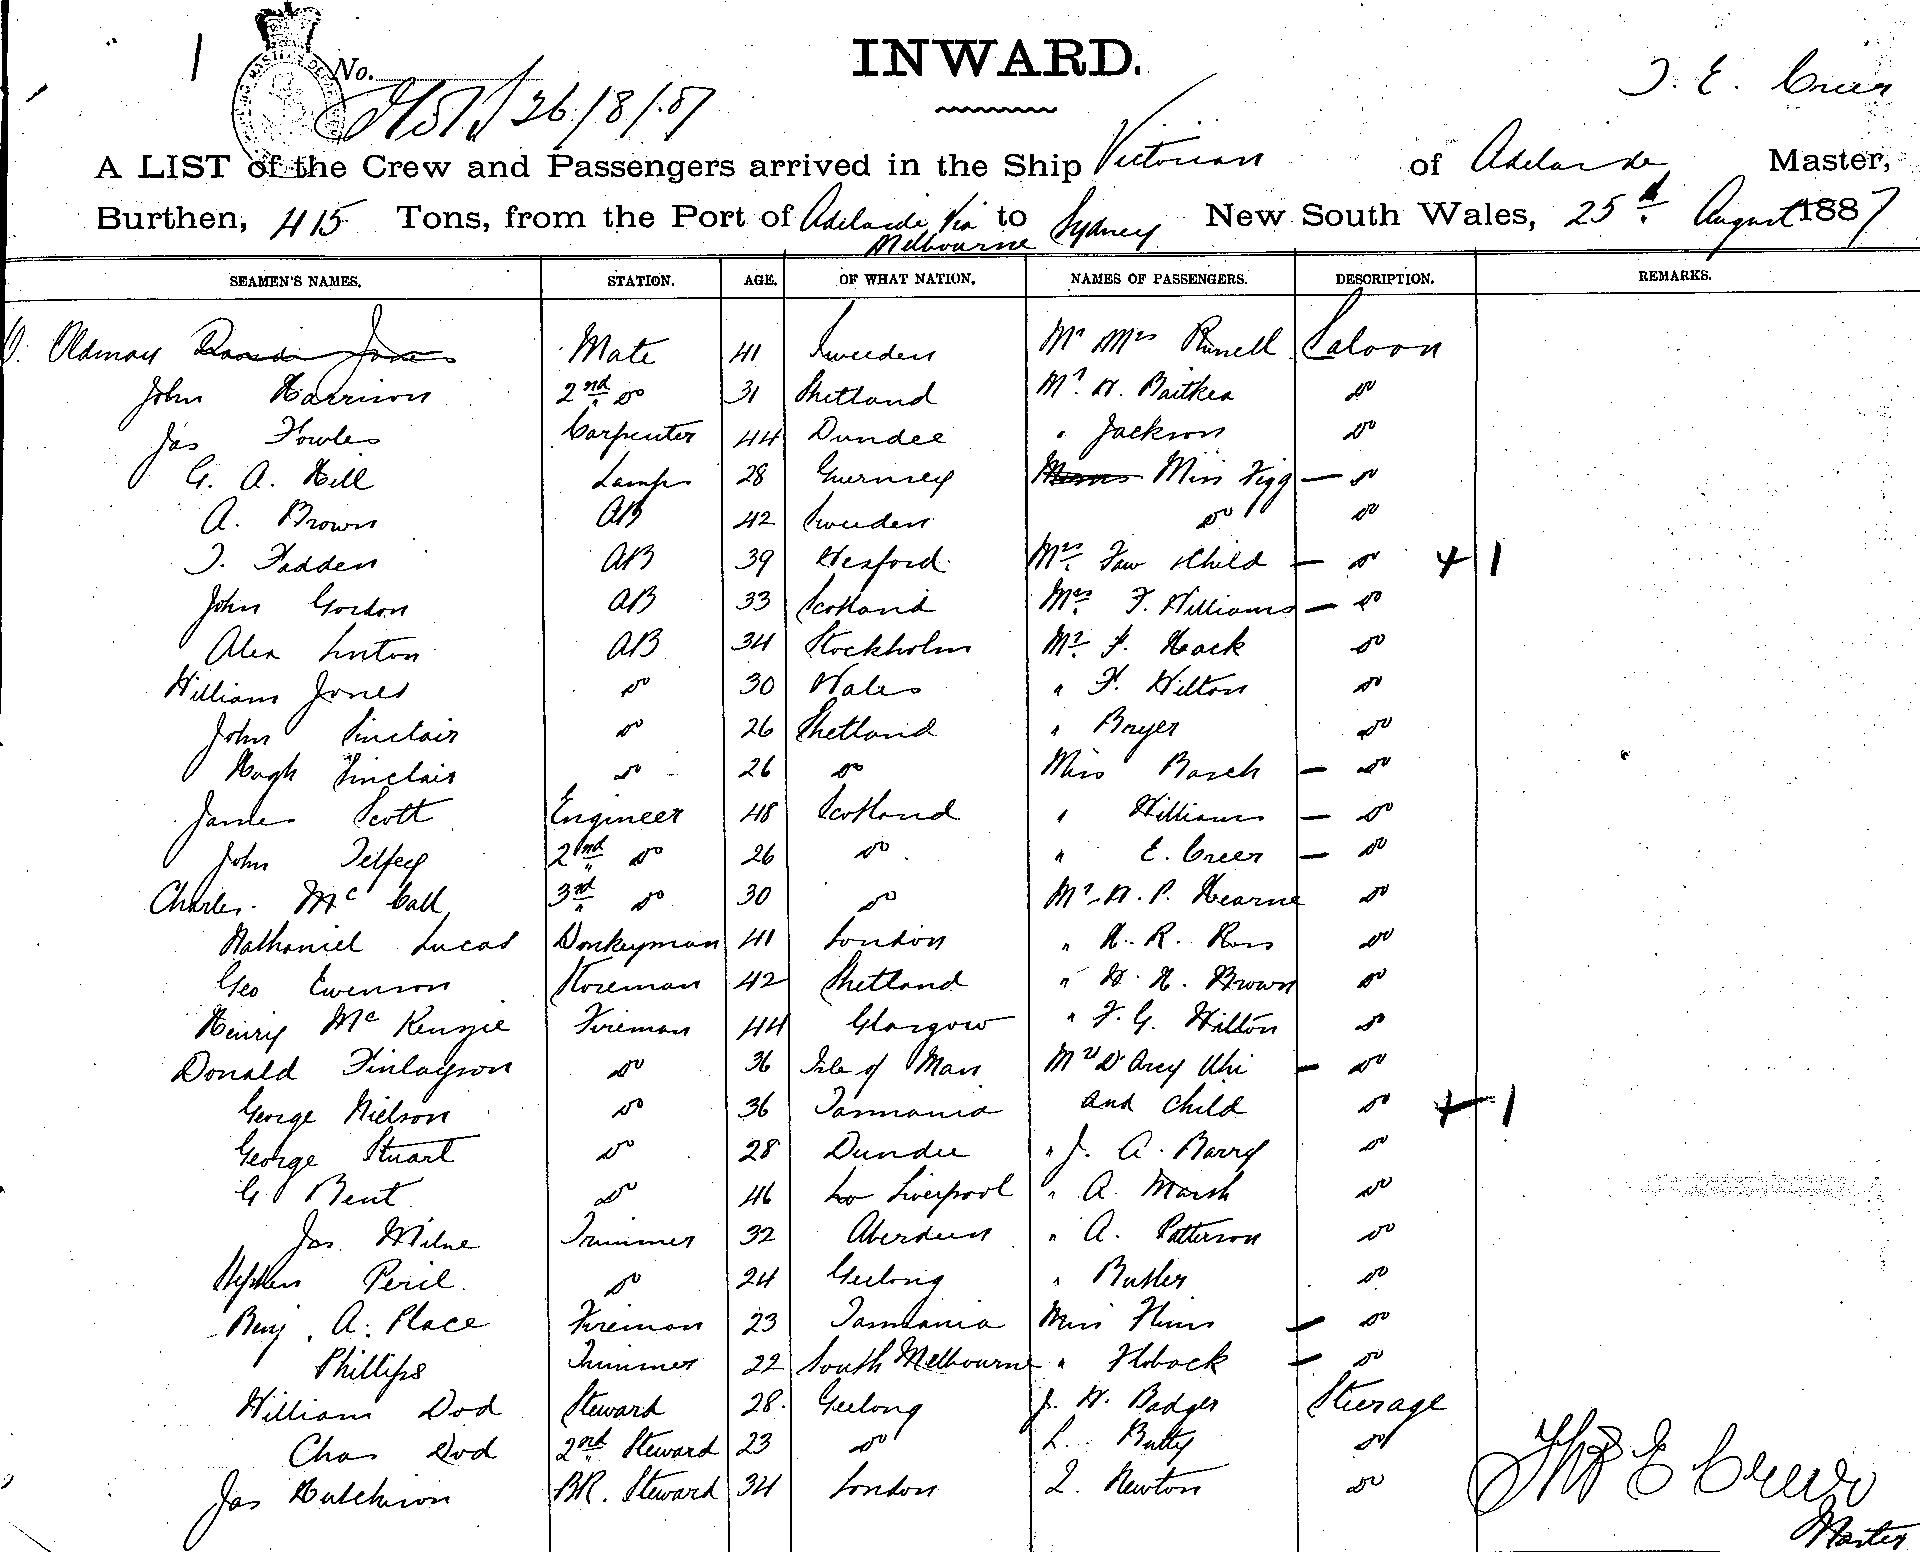 1
No.
INWARD.
26/8/87
T. E. Creer
A LIST of the Crew and Passengers arrived in the Ship Victorian of Adelaide, Master,
Burthen, 415 Tons, from the Port of Adelaide Via Melbourne to Sydney New South Wales, 25th August 1887
SEAMEN'S NAMES. STATION. AGE. OF WHAT NATION. NAMES OF PASSENGERS. DESCRIPTION. REMARKS.
Oldman Mate 41 Sweeden Mr Mrs Saloon
John Harrison 2nd do 31 Shetland Mr. do
Jas Fowles Carpenter 44 Dundee " Jackson do
G. A. Hill Lamps 28 Guernsey Miss Figg — do
A. Brown AB 42 Sweeden do do
T. Fadden AB 39 Wexford Mrs. Faw & Child — do + 1
John Gordon AB 33 Scotland Mrs. F. Williams — do
Alex Linton AB 34 Stockholm Mr. F. Hack do
William Jones do 30 Wales " F. Hilton do
John Sinclair do 26 Shetland " do
Hugh Sinclair do 26 do Miss — do
James Scott Engineer 48 Scotland " Williams — do
John Telfer 2nd do 26 do " E. Creer — do
Charles Mc Call 3rd do 30 do Mr. H. P. Hearne do
Nathaniel Lucas Donkeyman 41 London " H. R. Ross do
Geo Ewenson Storeman 42 Shetland " W. H. Brown do
Henry Mc Kenzie Fireman 44 Glasgow " F. G. Hilton do
Donald Finlayson do 36 Isle of Man D'Arcy — do
George Nielson do 36 Tasmania and Child do + 1
George Stuart do 28 Dundee " J. A. Barry do
G Bent do 46 Liverpool " A. Marsh do
Jas. Milne Trimmer 32 Aberdeen " A. Patterson do
Stephen Peril do 24 Geelong " Butler do
Benj. A. Place Fireman 23 Tasmania Miss — do
Phillips Trimmer 22 South Melbourne " — do
William Dod Steward 28 Geelong J. W. Badger Steerage
Chas Dod 2nd Steward 23 do L. do
Jas Hutchison BR. Steward 34 London Newton do
Thos E Creer
Master